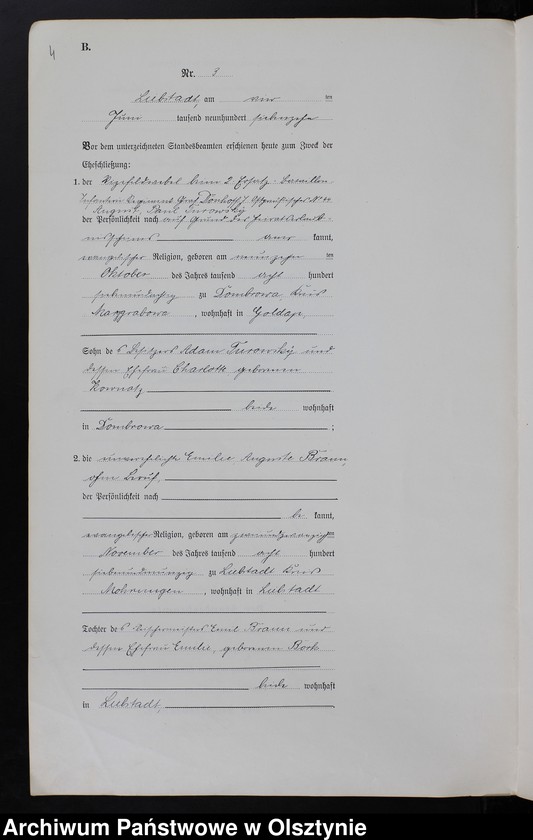 4
B.
Nr. 3
Liebstadt, am vier ten
Juni tausend neunhundert siebenzehn
Vor dem unterzeichneten Standesbeamten erschienen heute zum Zweck der
Eheschließung:
1. der Vizefeldwebel beim 2 Ersatz-Bataillon
Infanterie Regiment Graf Dönhoff 7. Ostpreußisches N. 44
August Paul Turowsky
der Persönlichkeit nach auf Grund des
kannt,
evangelischer Religion, geboren am neunzehn ten
Oktober des Jahres tausend acht hundert
siebenundachtzig zu Dombrowa, Kreis
Marggrabowa, wohnhaft in Goldap,
Sohn des Besitzers Adam Turowsky und
dessen Ehefrau Charlotte geborenen
beide wohnhaft
in Dombrowa ;
2. die unverehelichte Emilie Auguste Braun,
ohne Beruf,
der Persönlichkeit nach
be kannt,
evangelischer Religion, geboren am zweiundzwanzigsten
November des Jahres tausend acht hundert
siebenundneunzig zu Liebstadt Kreis
Mohrungen, wohnhaft in Liebstadt
Tochter des Emil Braun und
dessen Ehefrau Emilie, geborenen Bork
beide wohnhaft
in Liebstadt,
Archiwum Państwowe w Olsztynie